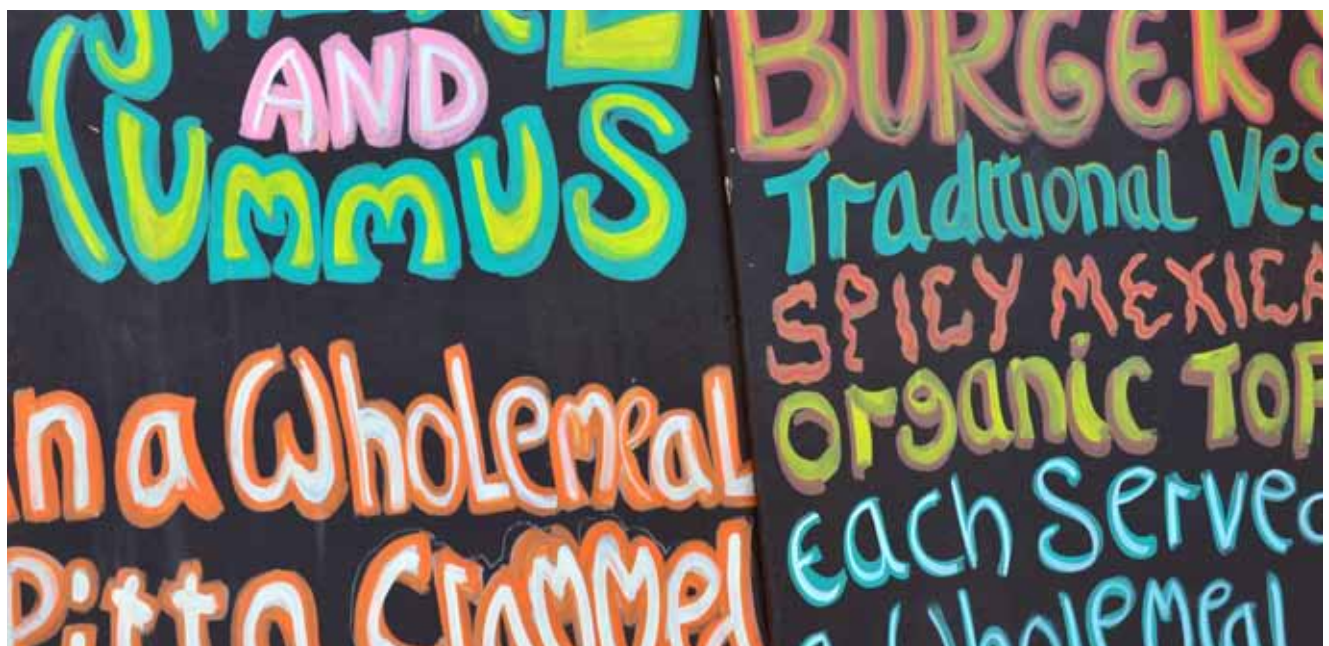 AND
HUMMUS
In a WholemeaL
Pitta Crammed
BURGERS
Traditional
SPICY
Organic
Each Served
Wholemeal